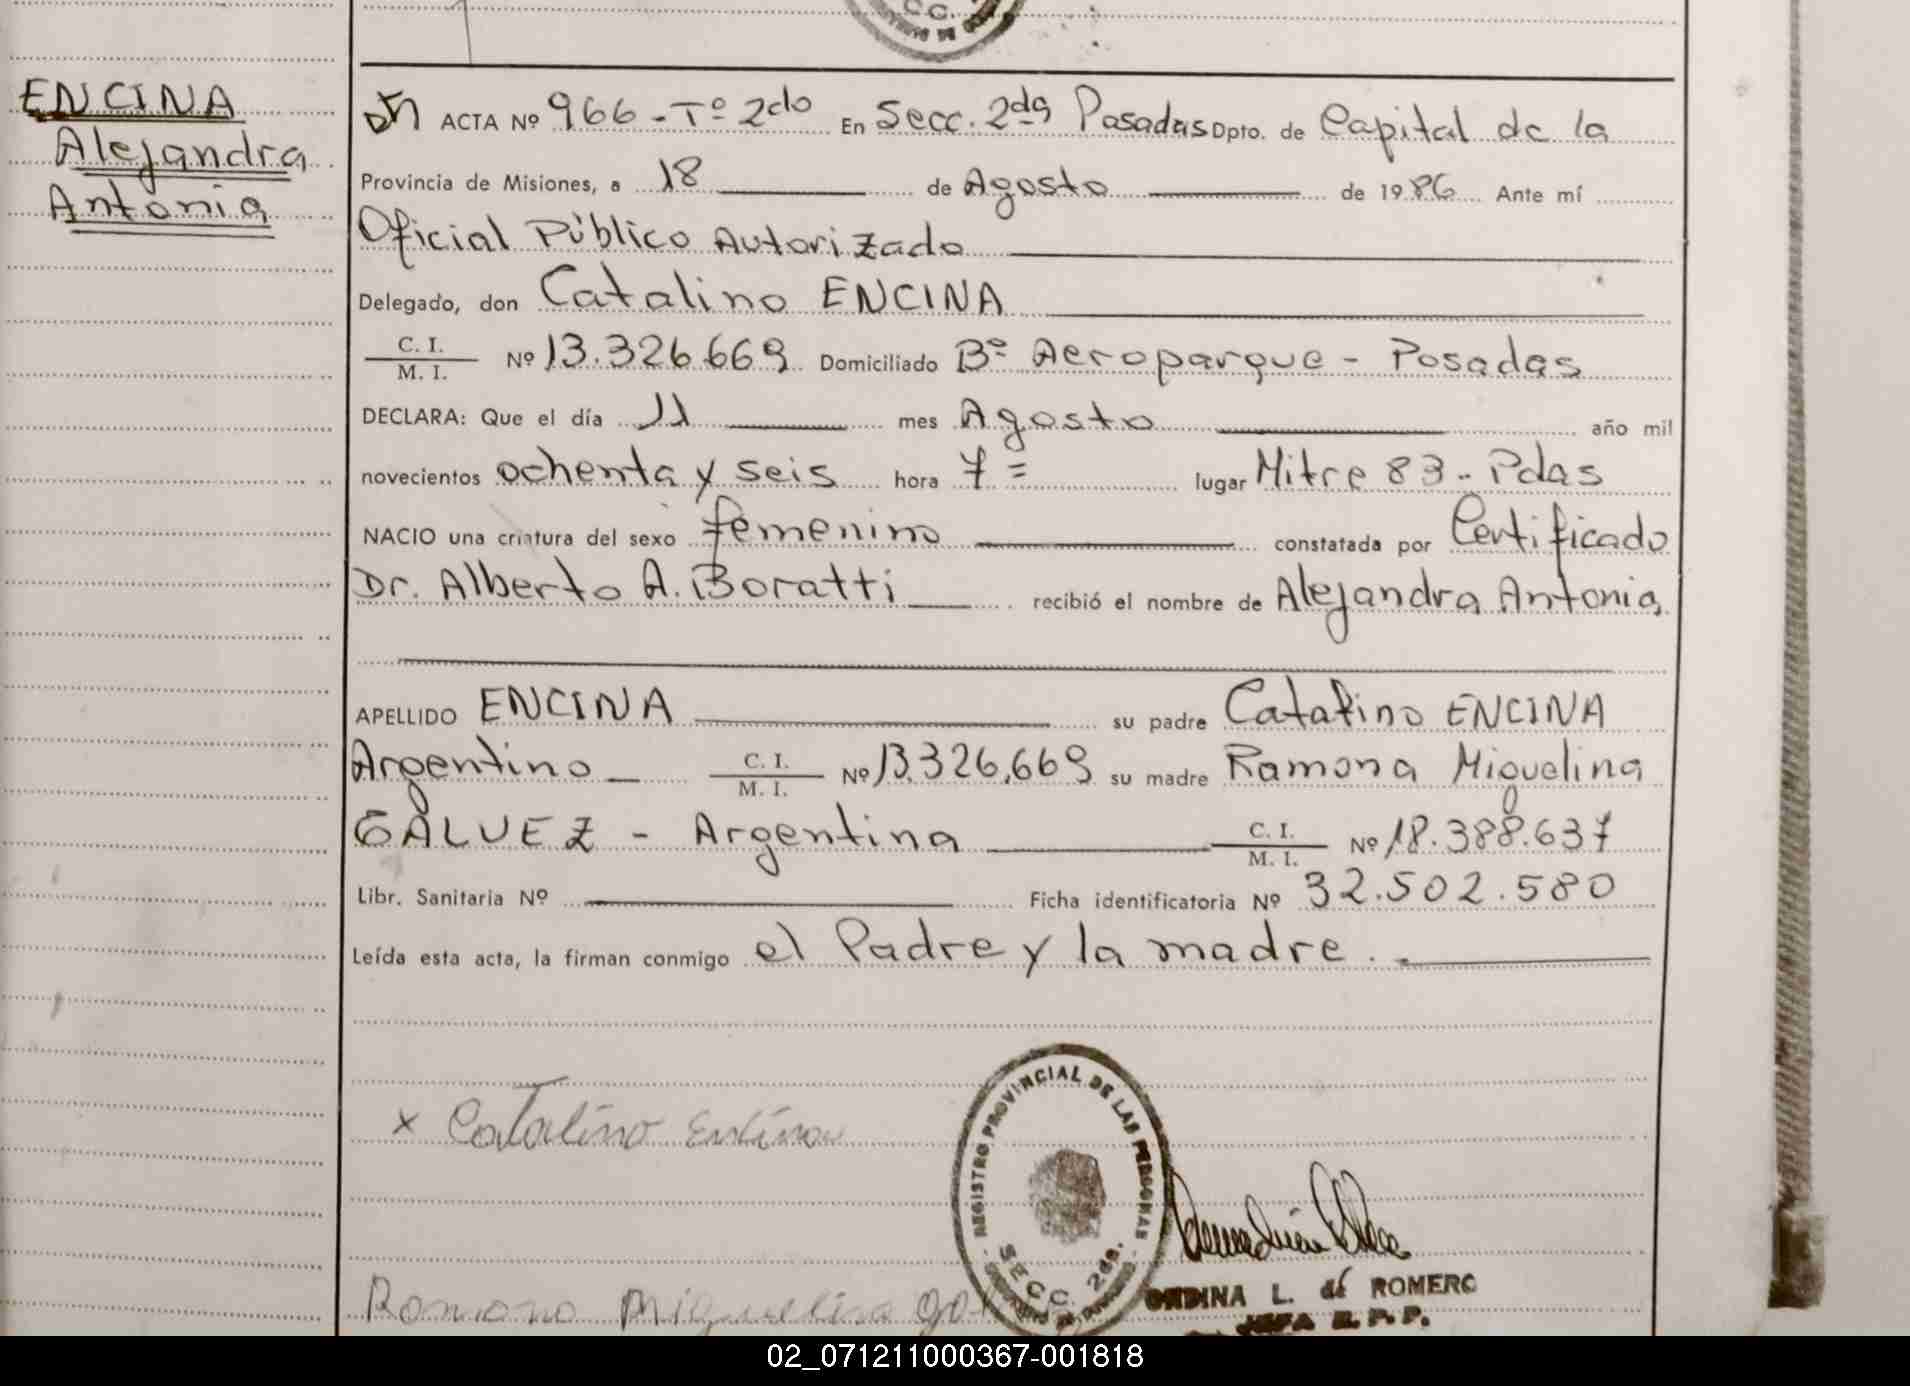 ENCINA
Alejandra
Antonia
ACTA Nº 966 - Tº 2do En Secc. 2da Posadas Dpto. de Capital de la
Provincia de Misiones, a 18 de Agosto de 1986 Ante mí
Oficial Público Autorizado
Delegado, don Catalino ENCINA
C. I.
M. I. Nº 13.326.669 Domiciliado Bº Aeroparque - Posadas
DECLARA: Que el día 11 mes Agosto año mil
novecientos ochenta y seis hora 7= lugar Mitre 83 - Pdas
NACIO una criatura del sexo femenino constatada por Certificado
Dr. Alberto A. Boratti recibió el nombre de Alejandra Antonia
APELLIDO ENCINA su padre Catalino ENCINA
Argentino C. I. M. I. Nº 13.326.669 su madre Ramona Miguelina
GALVEZ - Argentina C. I. M. I. Nº 18.388.637
Libr. Sanitaria Nº Ficha identificatoria Nº 32.502.580
Leída esta acta, la firman conmigo el Padre y la madre.
x Catalino Encina
REGISTRO PROVINCIAL DE LAS PERSONAS
SECC. 2da.
Ramona Miguelina
L. de ROMERO
JEFA R. P. P.
02_071211000367-001818